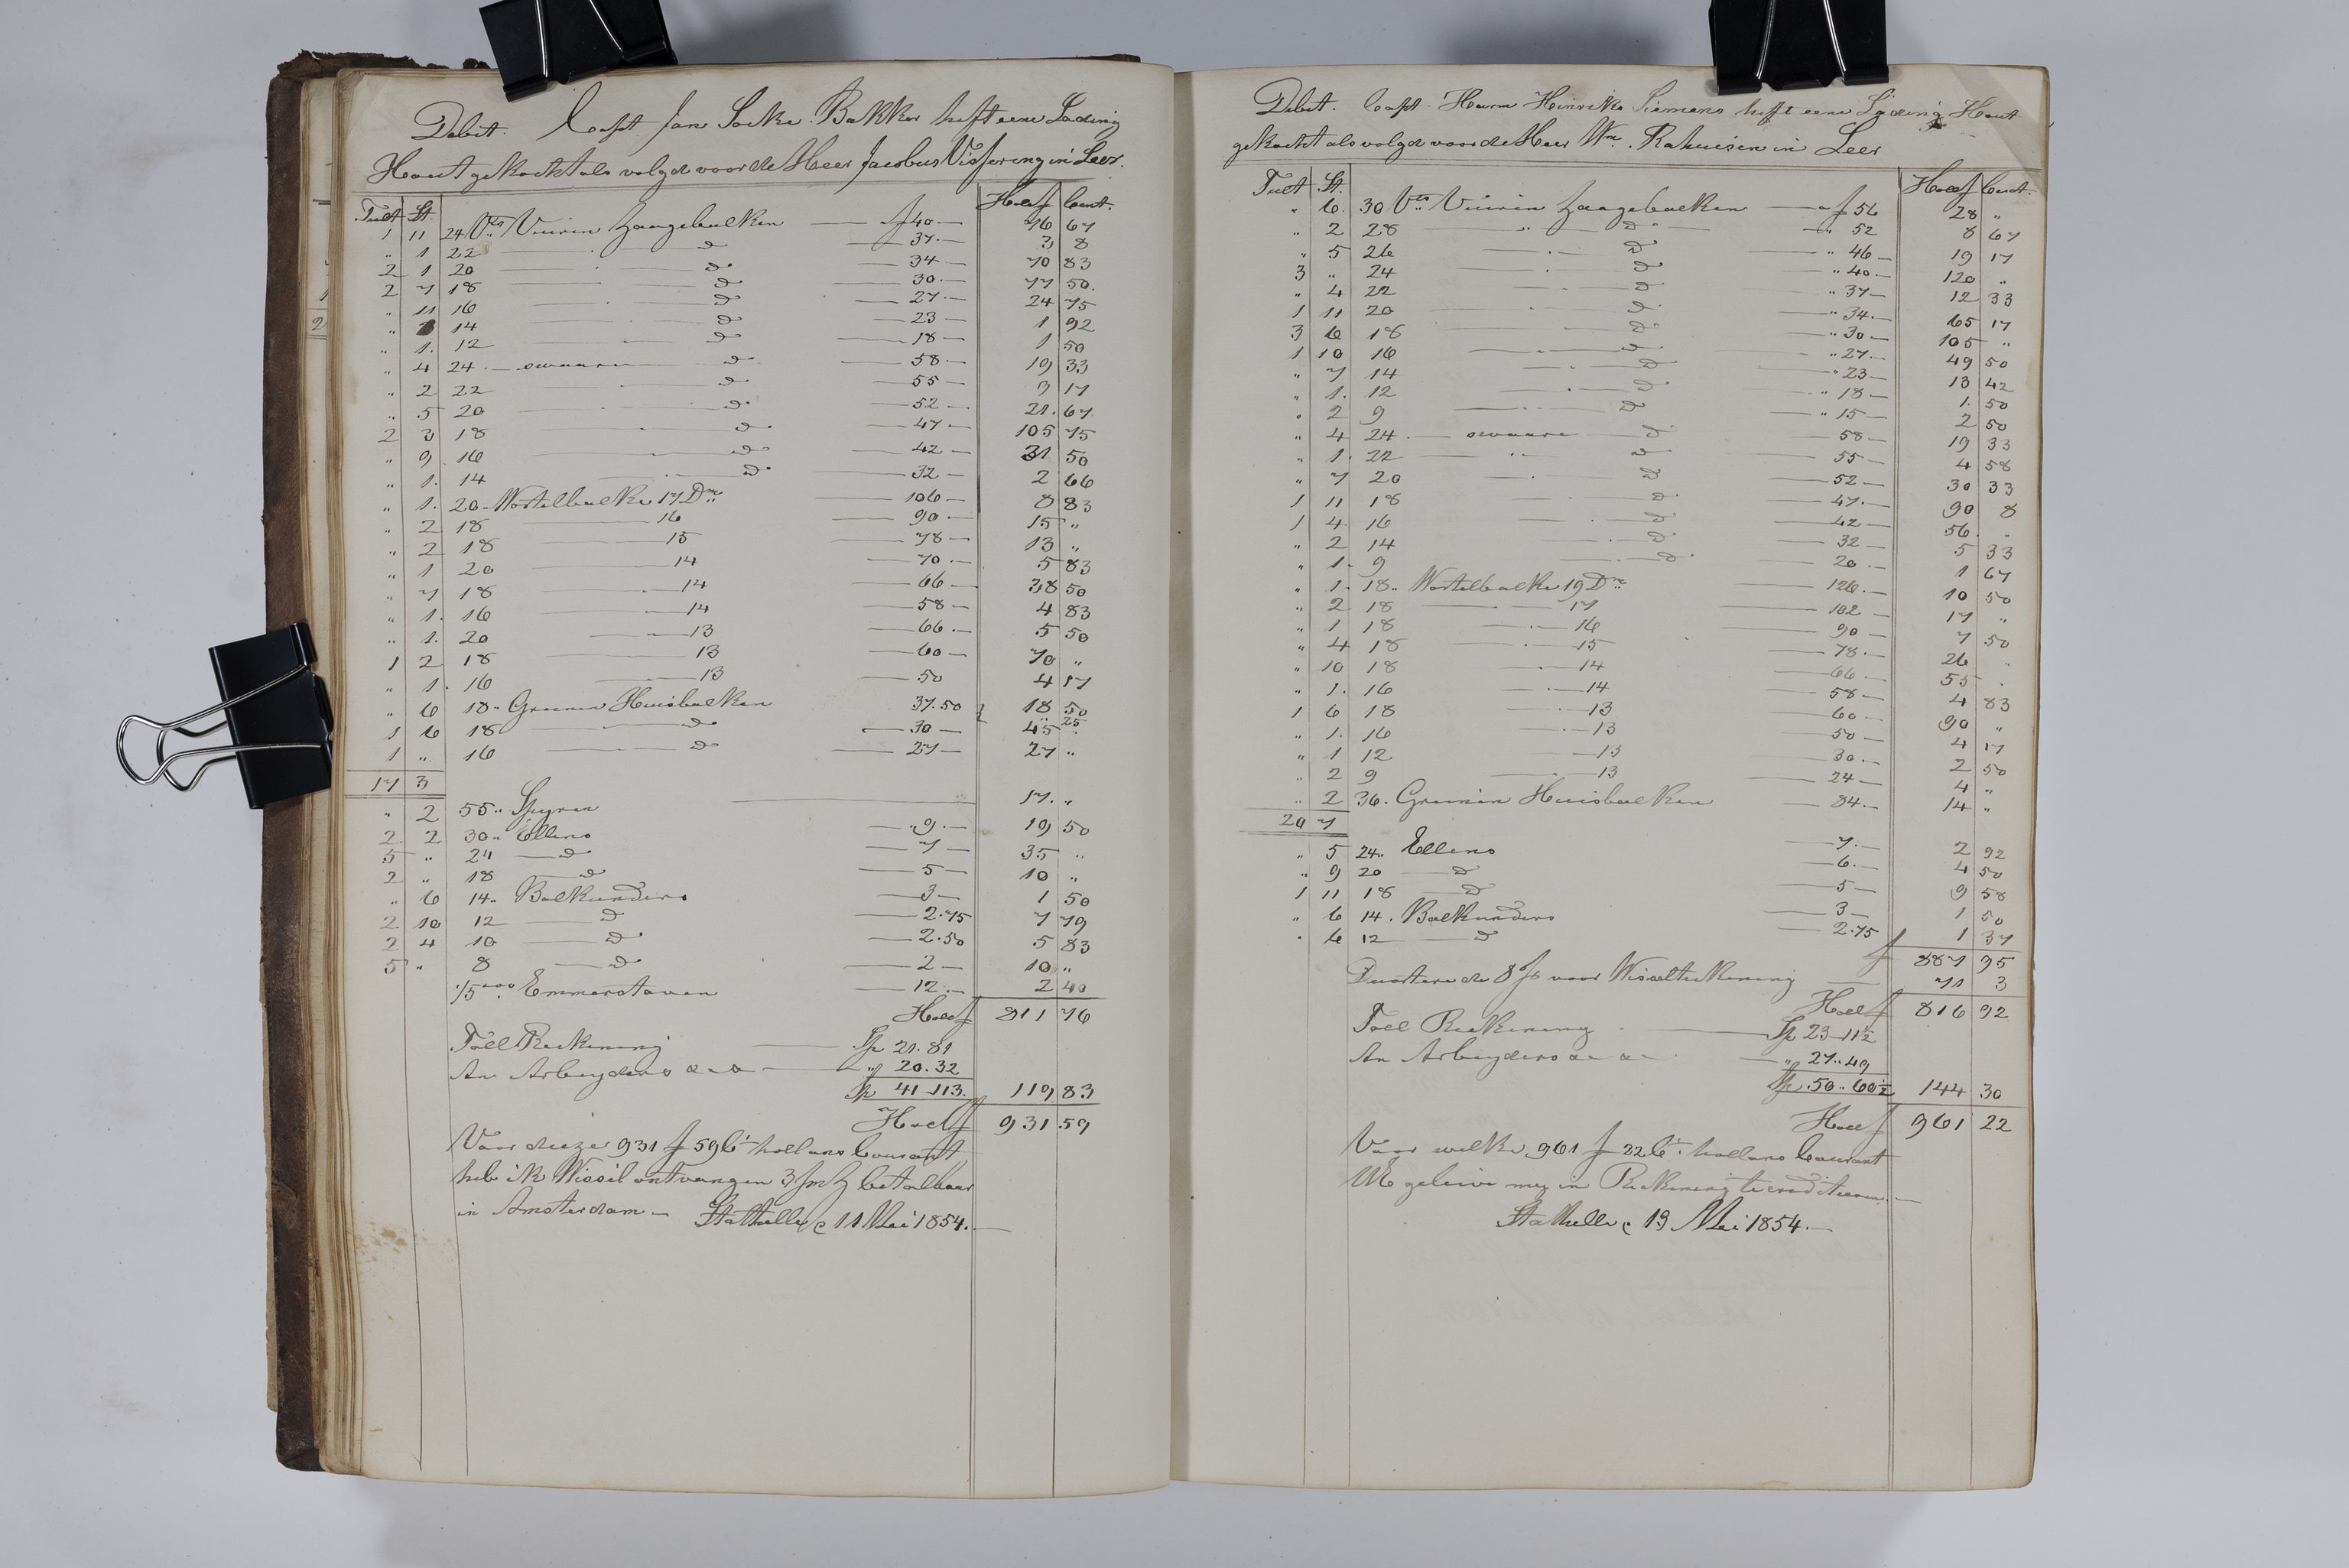 Debit. Capt Jan Socke Bakker heft eene Lading
Hout gekocht als volgd voor de Heer Jacobus Vissering in Leer.
Tult St. Holl f Cent.
1 11 24 Vts Vuuren Zaagebalken f 40 — 76 67
" 1 22 — d 37 — 3 8
2 1 20 — d 34 — 70 83
2 7 18 — d 30 — 77 50
" 11 16 — d 27 — 24 75
" 1 14 — d 23 — 1 92
" 1. 12 — d 18 — 1 50
" 4 24 — swaare d 58 — 19 33
" 2 22 — d 55 — 9 17
" 5 20 — d 52 — 21. 67
2 3 18 — d 47 — 105 75
" 9 16 — d 42 — 31 50
" 1. 14 — d 32 — 2 66
" 1. 20 Wortelbalke 17 Dm 106 — 8 83
" 2 18 — 16 — 90 — 15 "
" 2 18 — 15 — 78 — 13 "
" 1 20 — 14 — 70 — 5 83
" 7 18 — 14 — 66 — 38 50
" 1. 16 — 14 — 58 — 4 83
" 1. 20 — 13 — 66 — 5 50
1 2 18 — 13 — 60 — 70 "
" 1. 16 — 13 — 50 4 17
" 6 18 Greenen Huisbalken 37.50 18 50
1 6 18 — d 30 — 45 "
1 " 16 — d 27 — 27 "
17 3
" 2 55 " Spyren — 17. "
2 2 30 " Ellens — 9 — 19 50
5 " 24 — d — 7 — 35 "
2 " 18 — d — 5 — 10 "
" 6 14 " Balkunders — 3 — 1 50
2 10 12 — d — 2.75 7 79
2 4 10 — d — 2.50 5 83
5 " 8 — d — 2 — 10 "
1/5000 Emmerstaven — 12 — 2 40
Holl f 811 76
Toll Reekening — Sp 21.81
An Arbeyders — " 20.32
Sp 41 113. 119 83
Holl f 931 59
Voor dieze 931 f 59 Ct hollans Courant
heb ik Wissel ontvangen 3 betalbaar
in Amsterdam — Stathelle 11 Mei 1854.
Debit. Capt Harm Hinriks Siemens heft eene Lading Hout
gekocht als volgd voor de Heer Wm. Rahusen in Leer
Tult St. Holl f Cent.
" 6. 30 Vts Vuuren Zaagebalken a f 56 28 "
" 2 28 — d — " 52 8 67
" 5 26 — d — " 46 — 19 17
3 " 24 — d — " 40 — 120 "
" 4 22 — d — " 37 — 12 33
1 11 20 — d — " 34 — 65 17
3 6 18 — d — " 30 — 105 "
1 10 16 — d — " 27 — 49 50
" 7 14 — d — " 23 — 13 42
" 1. 12 — d — " 18 — 1. 50
" 2 9 — d — " 15 — 2 50
" 4 24 — swaare d — 58 — 19 33
" 1. 22 — d — 55 — 4 58
" 7 20 — d — 52 — 30 33
1 11 18 — d — 47 — 90 8
1 4 16 — d — 42 — 56 "
" 2 14 — d — 32 — 5 33
" 1. 9 — d — 20 — 1 67
" 1. 18 Wortelbalke 19 Dm 126 — 10 50
" 2 18 — 17 — 102 — 17 "
" 1 18 — 16 — 90 — 7 50
" 4 18 — 15 — 78 — 26 "
" 10 18 — 14 — 66 — 55 "
" 1. 16 — 14 — 58 — 4 83
1 6 18 — 13 — 60 — 90 "
" 1. 16 — 13 — 50 — 4 17
" 1 12 — 13 — 30 — 2 50
" 2 9 — 13 — 24 — 4 "
" 2 36. Greenen Huisbalken — 84 — 14 "
20 7
" 5 24 " Ellens — 7 — 2 92
" 9 20 — d — 6 — 4 50
1 11 18 — d — 5 — 9 58
" 6 14. Balkunders — 3 — 1 50
" 6 12 — d — 2.75 1 37
f 887 95
8 % voor Wisseltekening — 71 3
Holl f 816 92
Toll Reekening — Sp 23 11½
An Arbeyders — " 27..49
Sp. 50..60½ 144 30
Holl f 961 22
Voor welke 961 f 22 Ct. hollans Courant
UE geleive my in Reekening te crediteeren —
Stathelle 19 Mei 1854. —